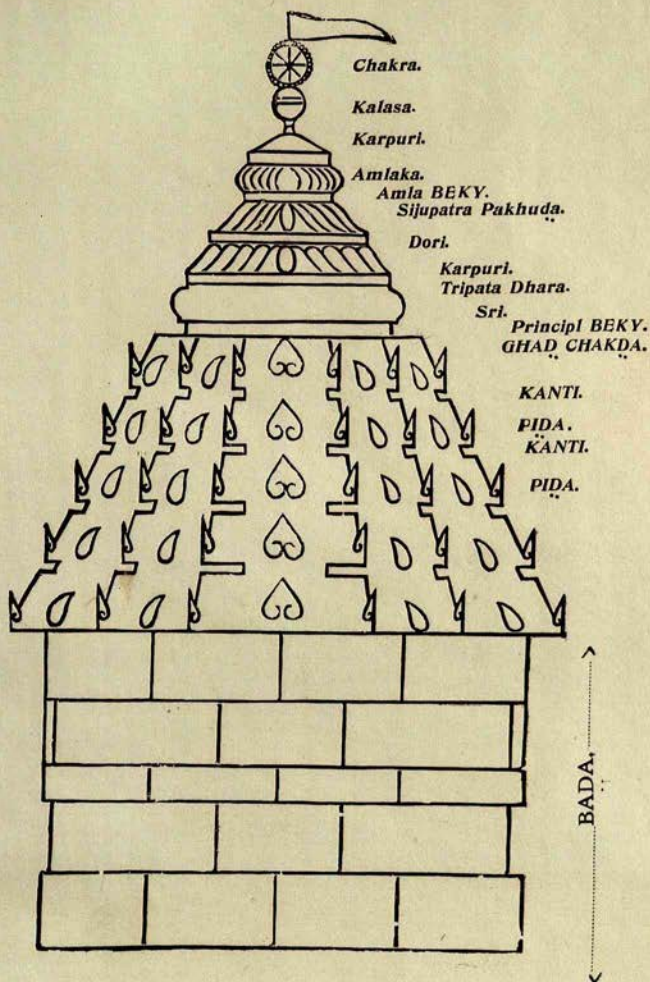 Chakra.
Kalasa.
Karpuri.
Amlaka.
Amla BEKY.
Sijupatra Pakhuḍa.
Dori.
Karpuri.
Tripata Dhara.
Sri.
Principl BEKY.
GHAD CHAKDA.
KANTI.
PIDA.
KANTI.
PIDA.
BADA,